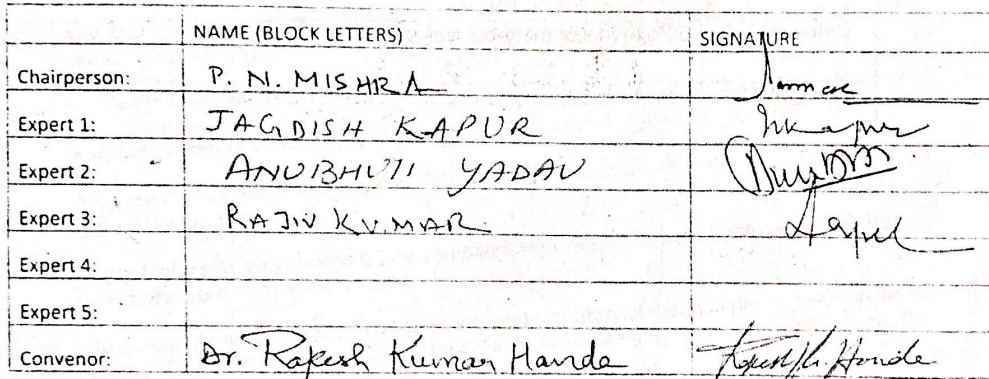 NAME (BLOCK LETTERS) SIGNATURE
Chairperson: P. N. MISHRA
Expert 1: JAGDISH KAPUR
Expert 2: ANUBHUTI YADAV
Expert 3: RAJIV KUMAR
Expert 4:
Expert 5:
Convenor: Dr. Rakesh Kumar Handa